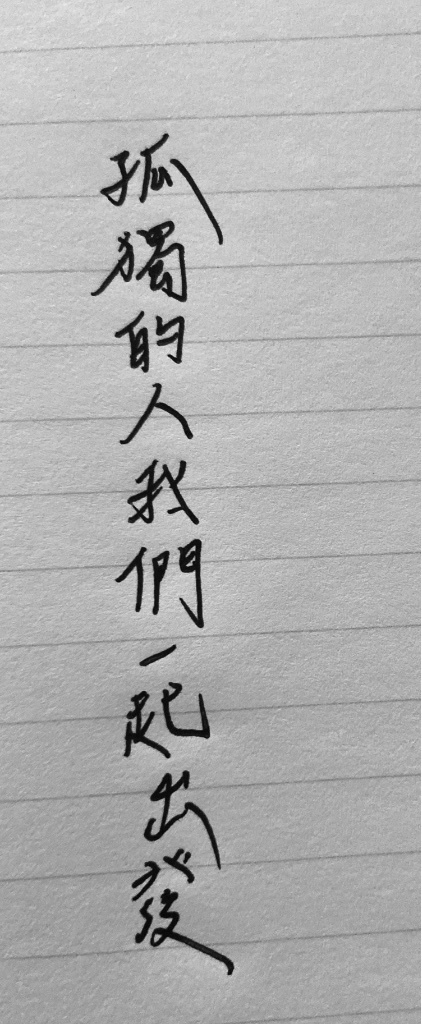 孤獨的人我們一起出發